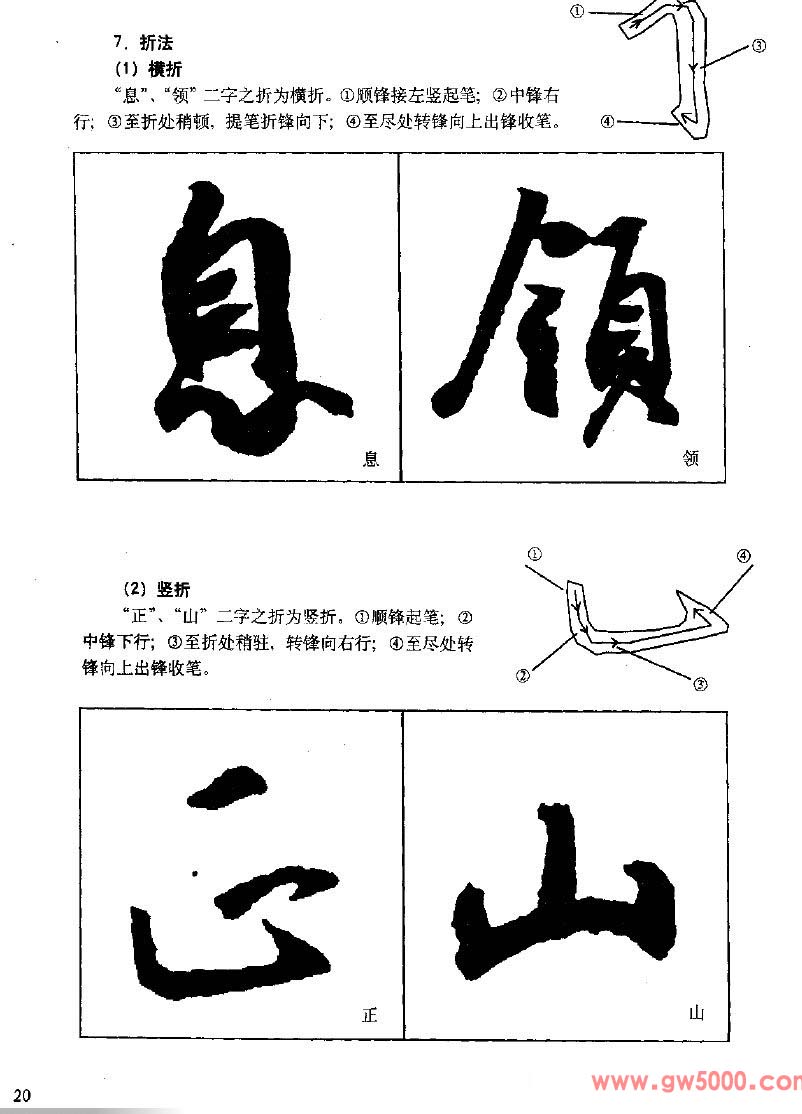 7．折法
(1) 横折
①
③
“息”、“领”二字之折为横折。①顺锋接左竖起笔；②中锋右
行；③至折处稍顿，提笔折锋向下；④至尽处转锋向上出锋收笔。
④
息
領
息
领
(2) 竖折
①
④
“正”、“山”二字之折为竖折。①顺锋起笔；②
中锋下行；③至折处稍驻，转锋向右行；④至尽处转
锋向上出锋收笔。
②
③
正
山
正
山
20
www.gw5000.com